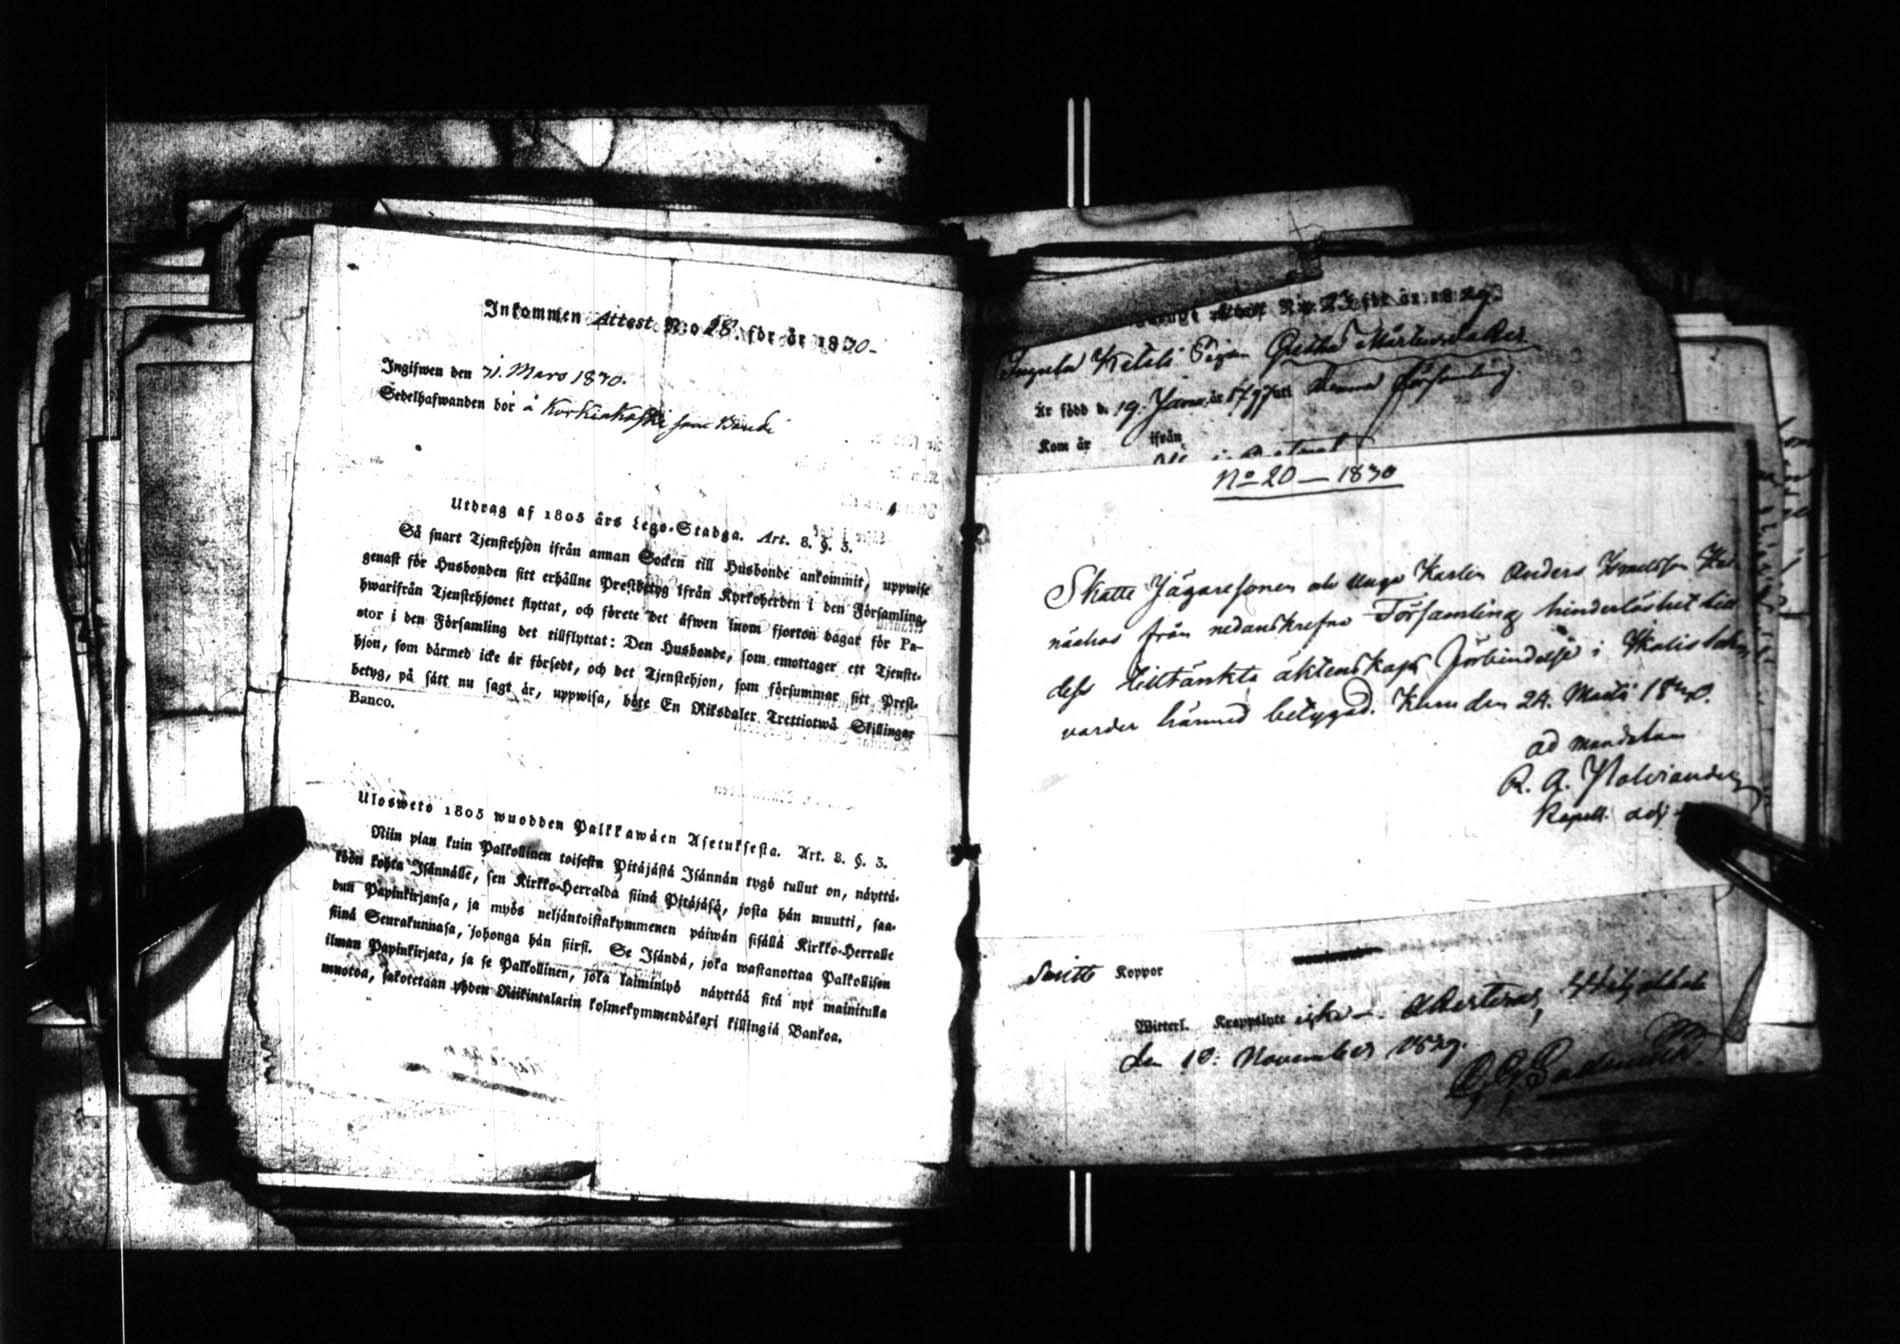 Inkommen Attest N:o 28. för år 1830-
Ingifwen den 31. Mars 1830.
Sedelhafwanden bor å Korkiakoski
Utdrag af 1805 års Lego-Stadga. Art. 8. §. 3.
Så snart Tjenstehjon ifrån annan Socken till Husbonde ankommit, uppwise
genast för Husbonden sitt erhållne Prestbetyg ifrån Kyrkoherden i den Församling,
hwarifrån Tjenstehjonet flyttat, och förete det äfwen inom fjorton dagar för Pa-
stor i den Församling det tillflyttat: Den Husbonde, som emottager ett Tjenste-
hjon, som dårmed icke år försedt, och det Tjenstehjon, som försummar sitt Prest-
betyg, på sätt nu sagt år, uppwisa, böte En Riksdaler Trettiotwå Skillingar
Banco.
Ulosweto 1805 wuodden Palkkawåen Asetuksesta. Art. 8. §. 3.
Niin pian kuin Palkollinen toisesta Pitåjåstå Isånnån tygö tullut on, nåyttå-
köön kohta Isånnålle, sen Kirkko-Herralda siinå Pitåjåså, josta hån muutti, saa-
dun Papinkirjansa, ja myös neljåntoistakymmenen påiwån sisållå Kirkko-Herralle
siinå Seurakunnasa, johonga hån siirsi. Se Isåndå, joka wastanottaa Palkollisen
ilman Papinkirjata, ja se Palkollinen, joka laiminlyö nåyttåå sitå nyt mainitulla
muotoa, sakotetaan yhden Riikintalarin kolmekymmendåkaxi killingiå Bankoa.
Attest N:o för år 1829
Pigan Greta Mårtensdotter
Är född d. 19. Janu. år 1797 uti denna församling
Kom år ifrån
No 20 — 1830
Skatte Jägaresonen och unge Karlen Anders
från nedanskrefne Församling hinderlöshet till
dess tilltänkta äktenskaps förbindelse i
varder härmed betygad. den 24. Martii 1830.
ad mandatum
R. A.
Kapell. adj.
Koppor
Witterl. Krappslytt
den 10: November 1829.